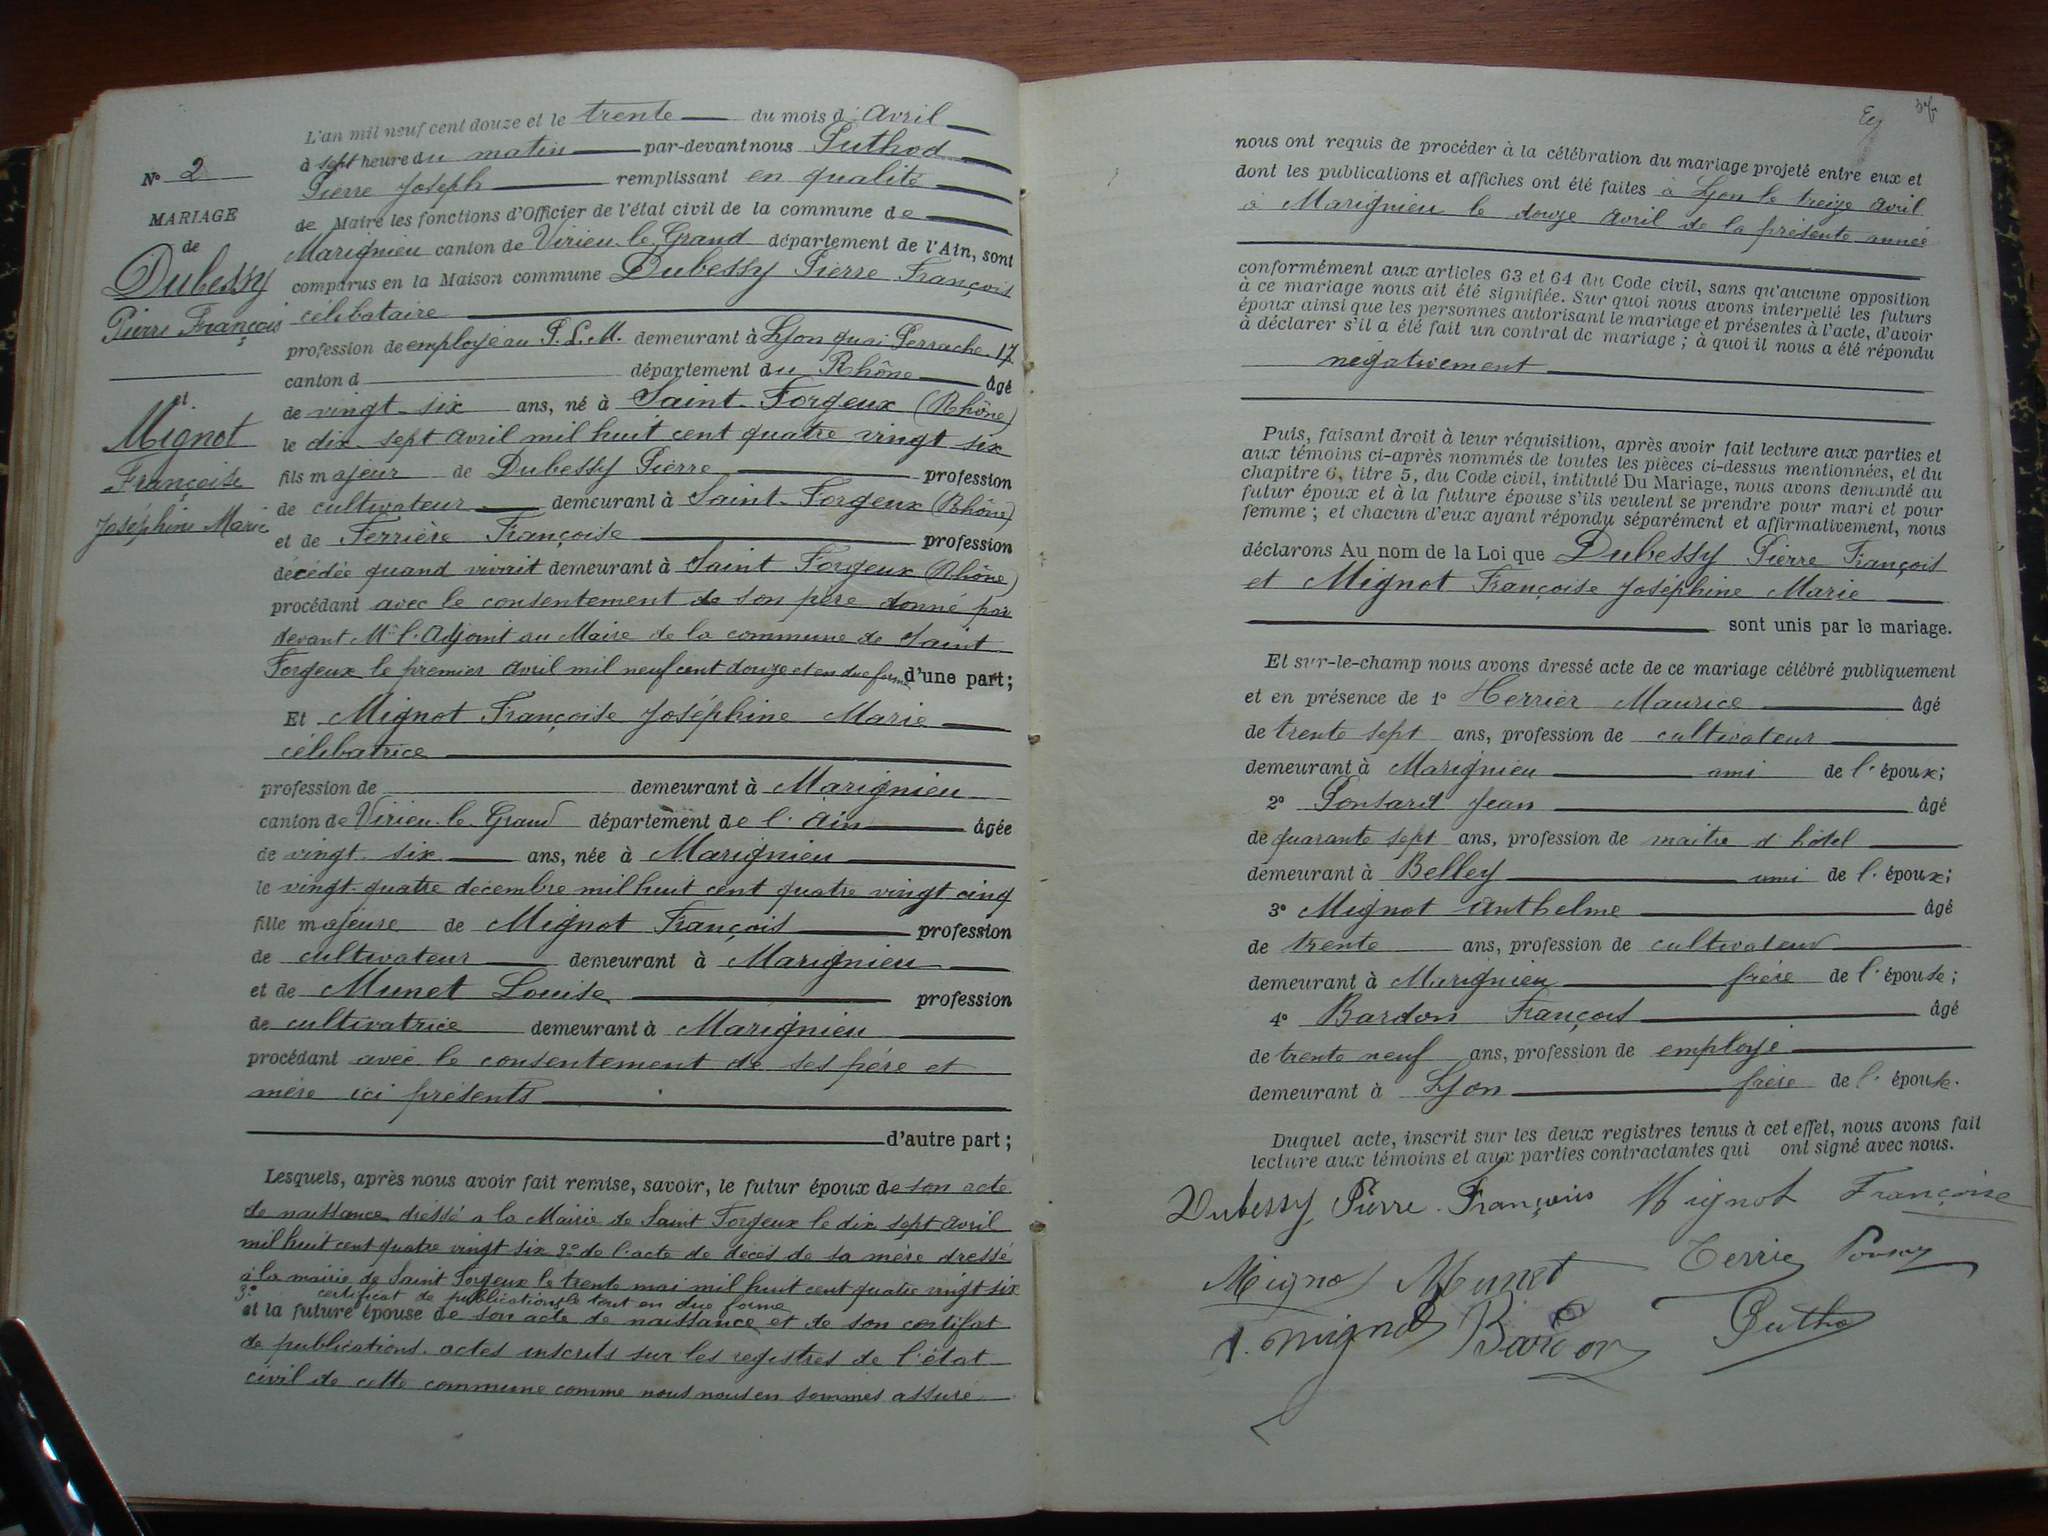 L'an mil neuf cent douze et le trente du mois d'avril
à sept heure du matin par-devant nous Puthod
Pierre Joseph remplissant en qualité
de Maire les fonctions d'Officier de l'état civil de la commune de
Marignieu canton de Virieu-le-Grand département de l'Ain, sont
comparus en la Maison commune Dubessy Pierre François
célibataire
profession de employé au P. L. M. demeurant à Lyon quai Perrache. 17
canton d département du Rhône âgé
de vingt-six ans, né à Saint-Forgeux (Rhône)
le dix sept avril mil huit cent quatre vingt six
fils majeur de Dubessy Pierre profession
de cultivateur demeurant à Saint-Forgeux (Rhône)
et de Ferrière Françoise profession
décédée quand vivait demeurant à Saint Forgeux (Rhône)
procédant avec le consentement de son père donné par
devant Mr l'Adjoint au Maire de la commune de Saint
Forgeux le premier avril mil neuf cent douze et en due forme d'une part;
Et Mignot Françoise Joséphine Marie
célibatrice
profession de demeurant à Marignieu
canton de Virieu-le-Grand département de l'Ain âgée
de vingt-six ans, née à Marignieu
le vingt-quatre décembre mil huit cent quatre vingt cinq
fille majeure de Mignot François profession
de cultivateur demeurant à Marignieu
et de Munet Louise profession
de cultivatrice demeurant à Marignieu
procédant avec le consentement de ses père et
mère ici présents
d'autre part;
Lesquels, après nous avoir fait remise, savoir, le futur époux de son acte
de naissance dressé a la Mairie de Saint Forgeux le dix sept avril
mil huit cent quatre vingt six 2º de l'acte de décès de sa mère dressé
à la mairie de Saint Forgeux le trente mai mil huit cent quatre vingt six
3º certificat de publications le tout en due forme
et la future épouse de son acte de naissance et de son certifat
de publications. actes inscrits sur les registres de l'état
civil de cette commune comme nous nous en sommes assuré
Nº 2
MARIAGE
de
Dubessy
Pierre François
et
Mignot
Françoise
Joséphine Marie
nous ont requis de procéder à la célébration du mariage projeté entre eux et
dont les publications et affiches ont été faites à Lyon le treize avril
à Marignieu le douze avril de la présente année
conformément aux articles 63 et 64 du Code civil, sans qu'aucune opposition
à ce mariage nous ait été signifiée. Sur quoi nous avons interpellé les futurs
époux ainsi que les personnes autorisant le mariage et présentes à l'acte, d'avoir
à déclarer s'il a été fait un contrat de mariage; à quoi il nous a été répondu
négativement
Puis, faisant droit à leur réquisition, après avoir fait lecture aux parties et
aux témoins ci-après nommés de toutes les pièces ci-dessus mentionnées, et du
chapitre 6, titre 5, du Code civil, intitulé Du Mariage, nous avons demandé au
futur époux et à la future épouse s'ils veulent se prendre pour mari et pour
femme; et chacun d'eux ayant répondu séparément et affirmativement, nous
déclarons Au nom de la Loi que Dubessy Pierre François
et Mignot Françoise Joséphine Marie
sont unis par le mariage.
Et sur-le-champ nous avons dressé acte de ce mariage célébré publiquement
et en présence de 1º Herrier Maurice âgé
de trente sept ans, profession de cultivateur
demeurant à Marignieu ami de l'époux;
2º Ponsard Jean âgé
de quarante sept ans, profession de maitre d'hôtel
demeurant à Belley ami de l'époux;
3º Mignot Anthelme âgé
de trente ans, profession de cultivateur
demeurant à Marignieu frère de l'épouse;
4º Bardon François âgé
de trente neuf ans, profession de employé
demeurant à Lyon frère de l'épouse.
Duquel acte, inscrit sur les deux registres tenus à cet effet, nous avons fait
lecture aux témoins et aux parties contractantes qui ont signé avec nous.
Dubessy Pierre François Mignot Françoise
Mignot Munet
A. Mignot Bardon Puthod